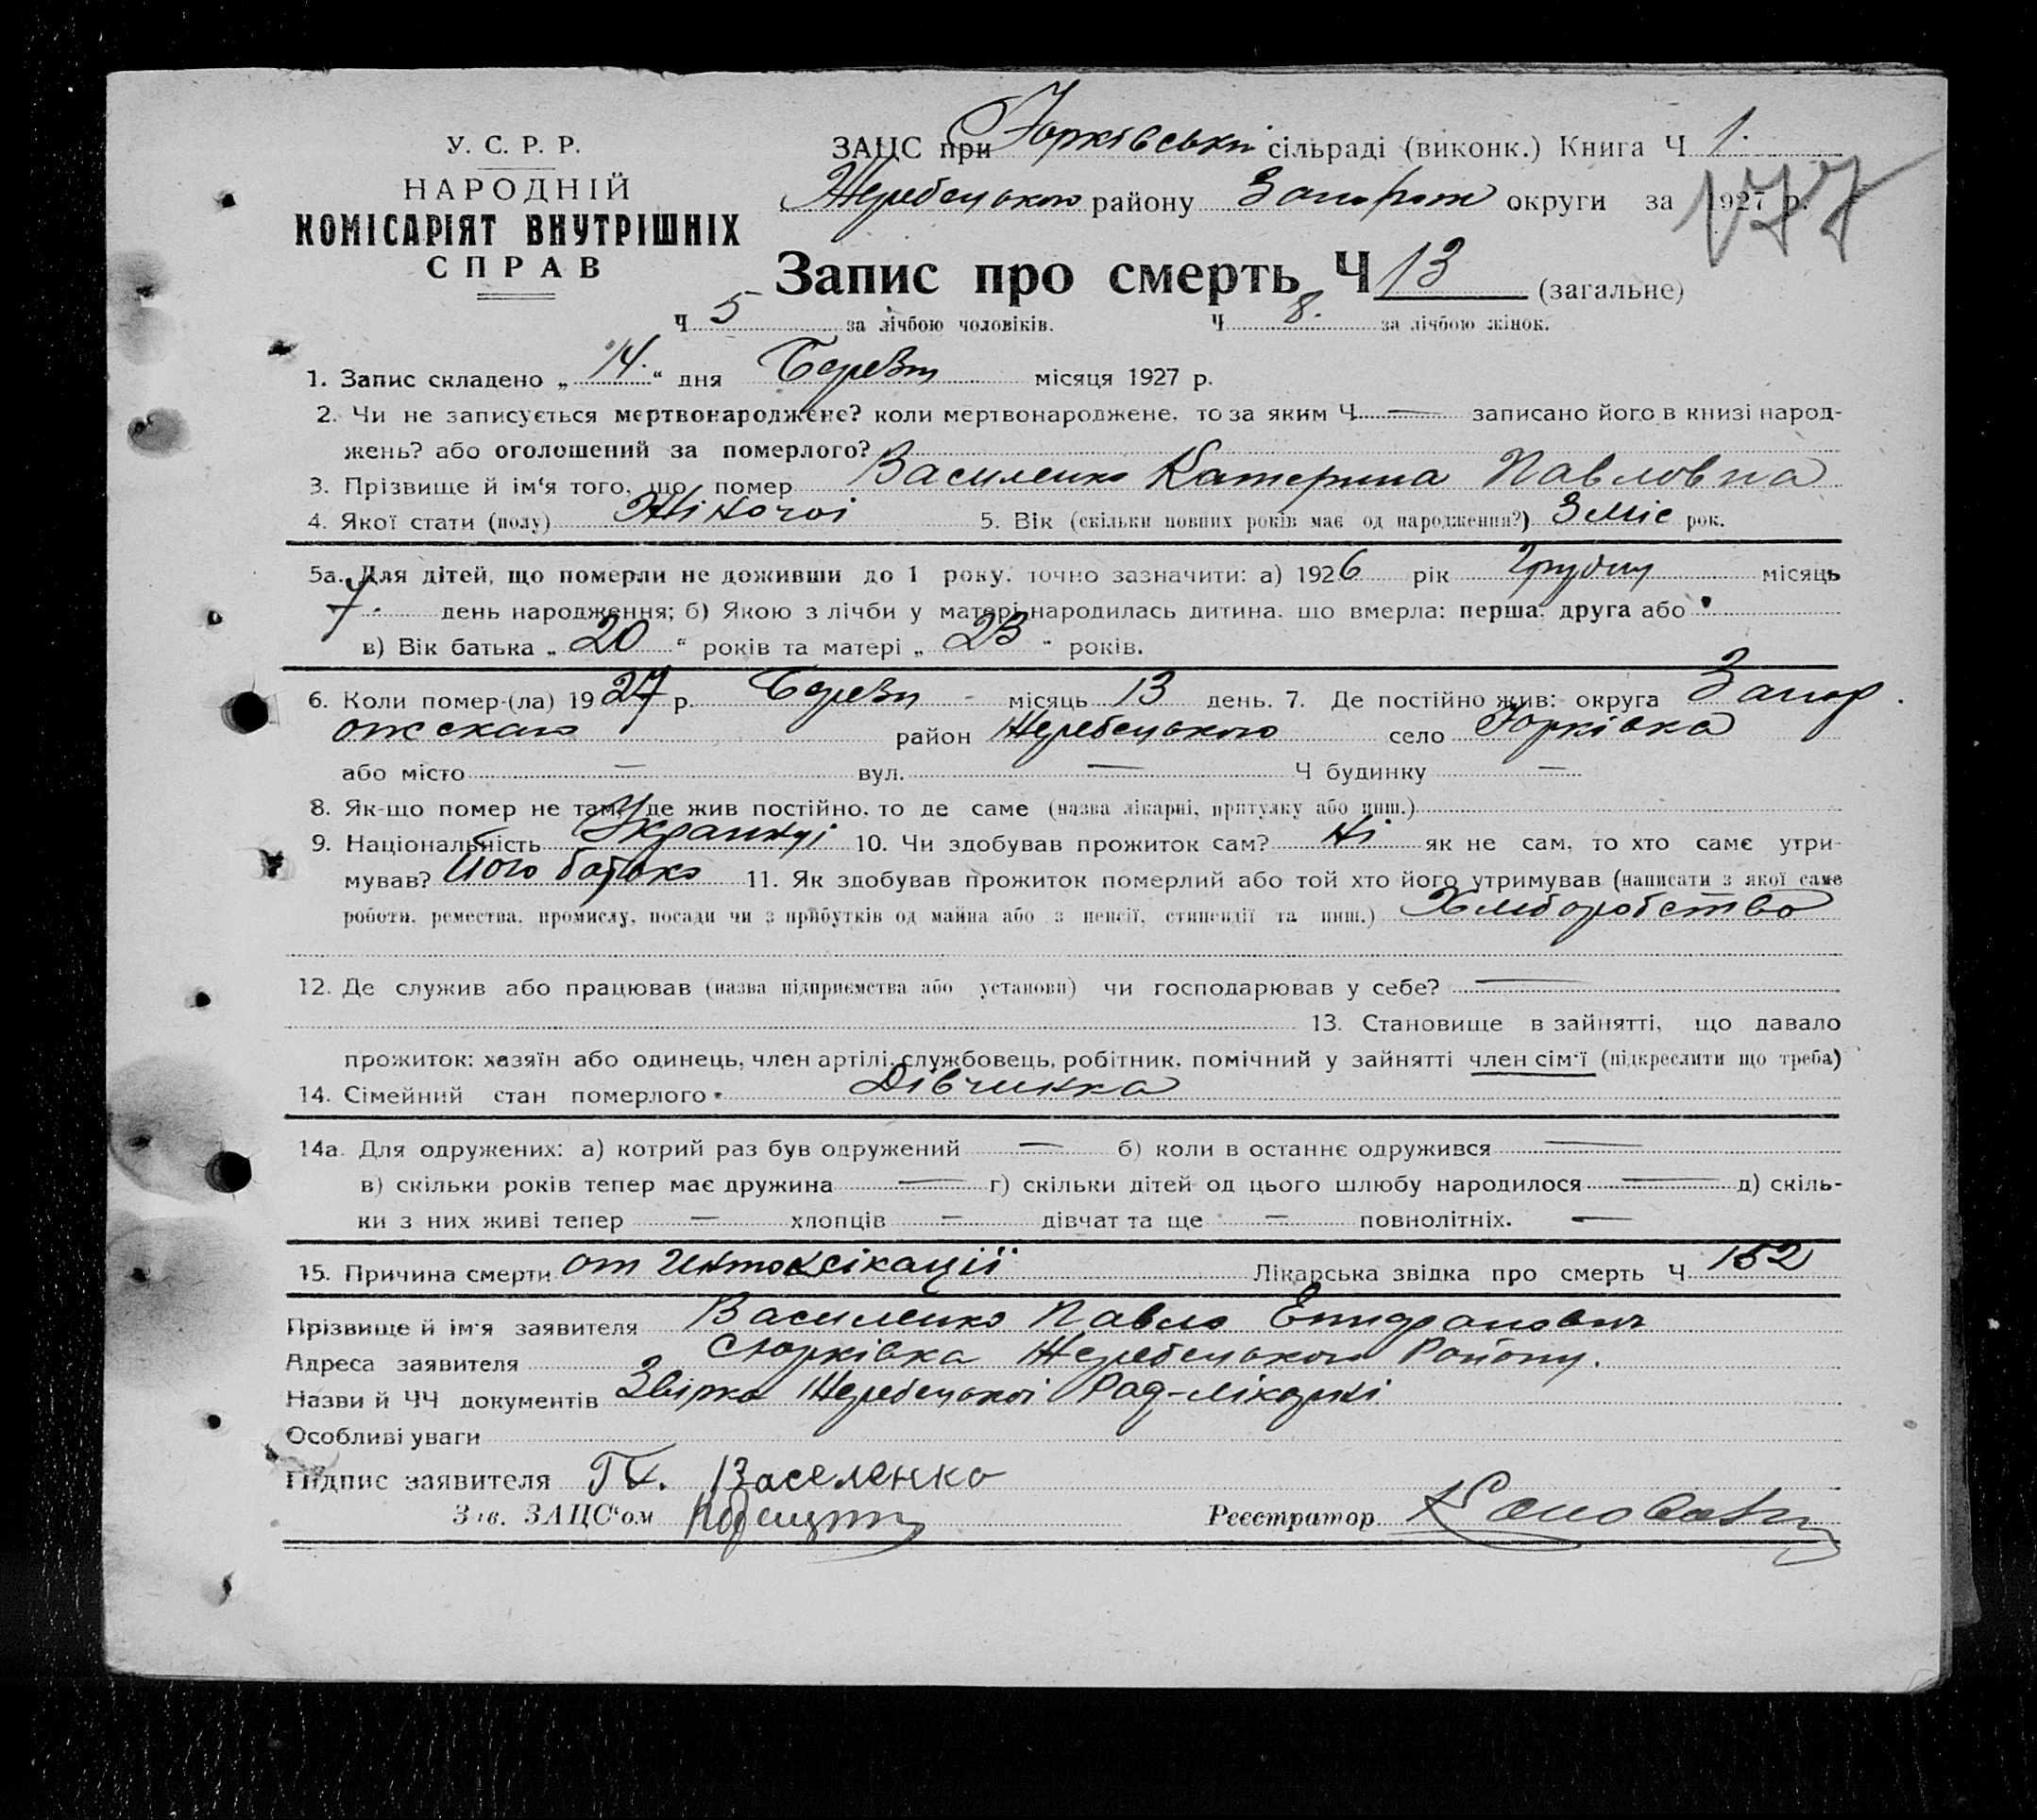 У. С. Р. Р.
НАРОДНІЙ
КОМІСАРІЯТ ВНУТРІШНІХ
СПРАВ
ЗАЦС при Юрківській сільраді (виконк.) Книга Ч 1.
Жеребецького району Запорож округи за 1927 р.
177
Запис про смерть Ч 13 (загальне)
Ч 5 за лічбою чоловіків. Ч 8. за лічбою жінок.
1. Запис складено „14.“ дня Березн місяця 1927 р.
2. Чи не записується мертвонароджене? коли мертвонароджене, то за яким Ч — записано його в книзі народ-
жень? або оголошений за померлого?
3. Прізвище й ім‘я того, що помер Василенко Катерина Павловна
4. Якої стати (полу) Жіночоі 5. Вік (скільки повних років має од народження?) 3 міс рок.
5а. Для дітей, що померли не доживши до 1 року, точно зазначити: а) 1926 рік Грудня місяць
7. день народження; б) Якою з лічби у матері народилась дитина, що вмерла: перша, друга або
в) Вік батька „20“ років та матері „23“ років.
6. Коли помер-(ла) 1927 р. Березн місяць 13 день. 7. Де постійно жив: округа Запор.
ожскаго район Жеребецького село Юрківка
або місто — вул. — Ч будинку —
8. Як-що помер не там, де жив постійно, то де саме (назва лікарні, притулку або инш.)
9. Національність Украінці 10. Чи здобував прожиток сам? Ні як не сам, то хто саме утри-
мував? Його батько 11. Як здобував прожиток померлий або той хто його утримував (написати з якої саме
роботи, ремества, промислу, посади чи з прибутків од майна або з пенсії, стипендії та инш.) Хлиборобство
12. Де служив або працював (назва підприємства або установи) чи господарював у себе? —
13. Становище в зайнятті, що давало
прожиток: хазяїн або одинець, член артілі, службовець, робітник, помічний у зайнятті член сім‘ї (підкреслити що треба)
14. Сімейний стан померлого Дівчинка
14а. Для одружених: а) котрий раз був одружений — б) коли в останнє одружився —
в) скільки років тепер має дружина — г) скільки дітей од цього шлюбу народилося — д) скіль-
ки з них живі тепер — хлопців — дівчат та ще — повнолітніх. —
15. Причина смерти от Интоксікаціі Лікарська звідка про смерть Ч 152
Прізвище й ім‘я заявителя Василенко Павло
Адреса заявителя с Юрківка Жеребецького Району.
Назви й ЧЧ документів Жеребецькоі Рад-лікарні
Особливі уваги
Підпис заявителя Василенко
Зав. ЗАЦС‘ом
Реєстратор